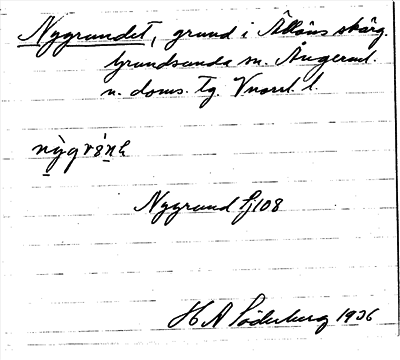 Nygrundet, grund i Ållöns skärg.
Grundsunda sn. Ångerml.
n. doms. tg. Vnorrl. l.
Nygrund Sj 108
H A Söderberg 1936